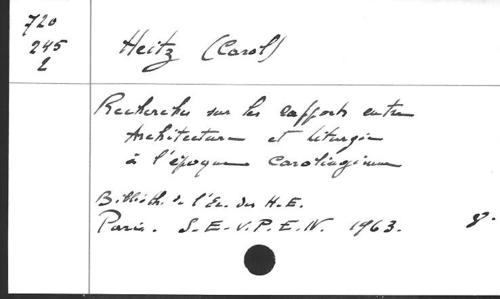 720
245
L
Heitz (Carol)
Recherches sur les rapports entre
Architecture et liturgie
à l'époque Carolingienne
Biblioth. de l'Ec. des H.E.
Paris. S.E.V.P.E.N. 1963. 8.